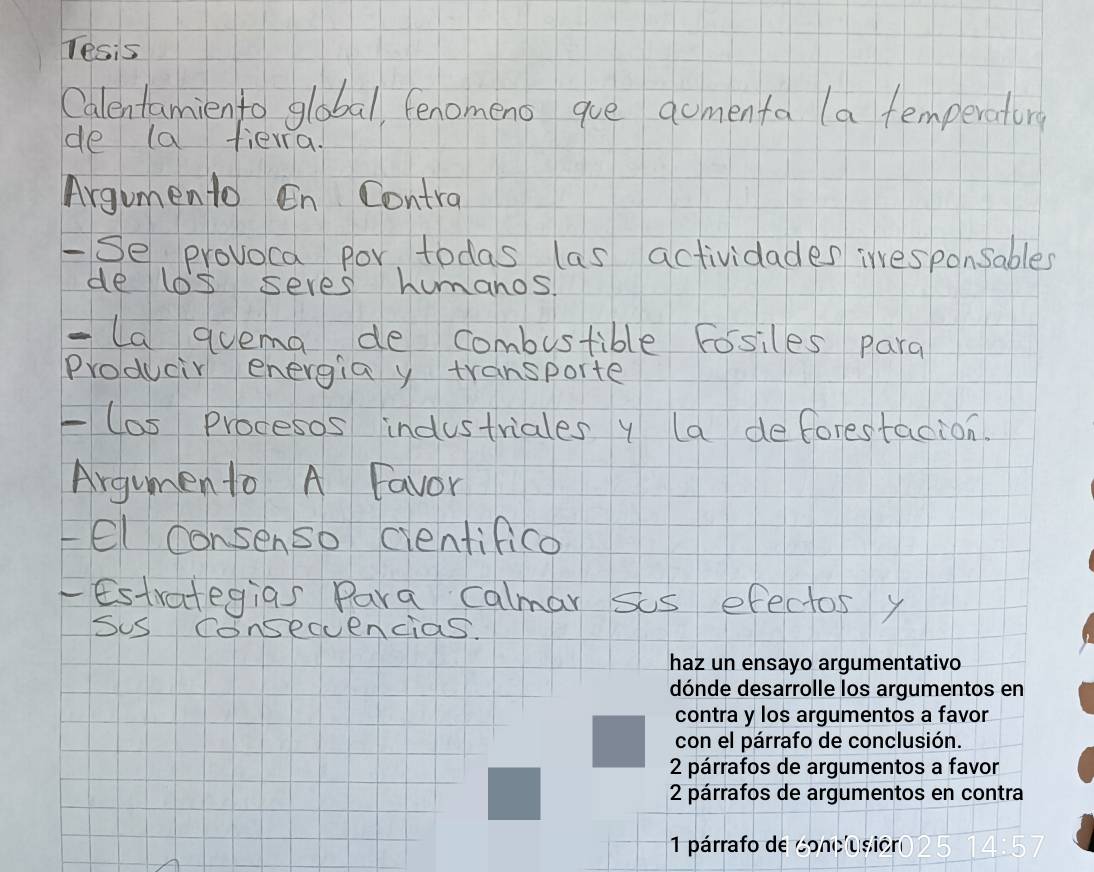 Tesis
Calentamiento global, fenomeno que aumenta la temperatura
de la tierra.
Argumento En Contra
- Se provoca por todas las actividades irresponsables
de los seres humanos.
- La quema de combustible Fósiles para
Producir energía y transporte
- Los Procesos industriales y la deforestación.
Argumento A Favor
- El consenso cientifico
- Estrategias Para calmar sus efectos y
sus consecuencias.
haz un ensayo argumentativo
dónde desarrolle los argumentos en
contra y los argumentos a favor
con el párrafo de conclusión.
2 párrafos de argumentos a favor
2 párrafos de argumentos en contra
1 párrafo de conclusión
16/10/2025 14:57